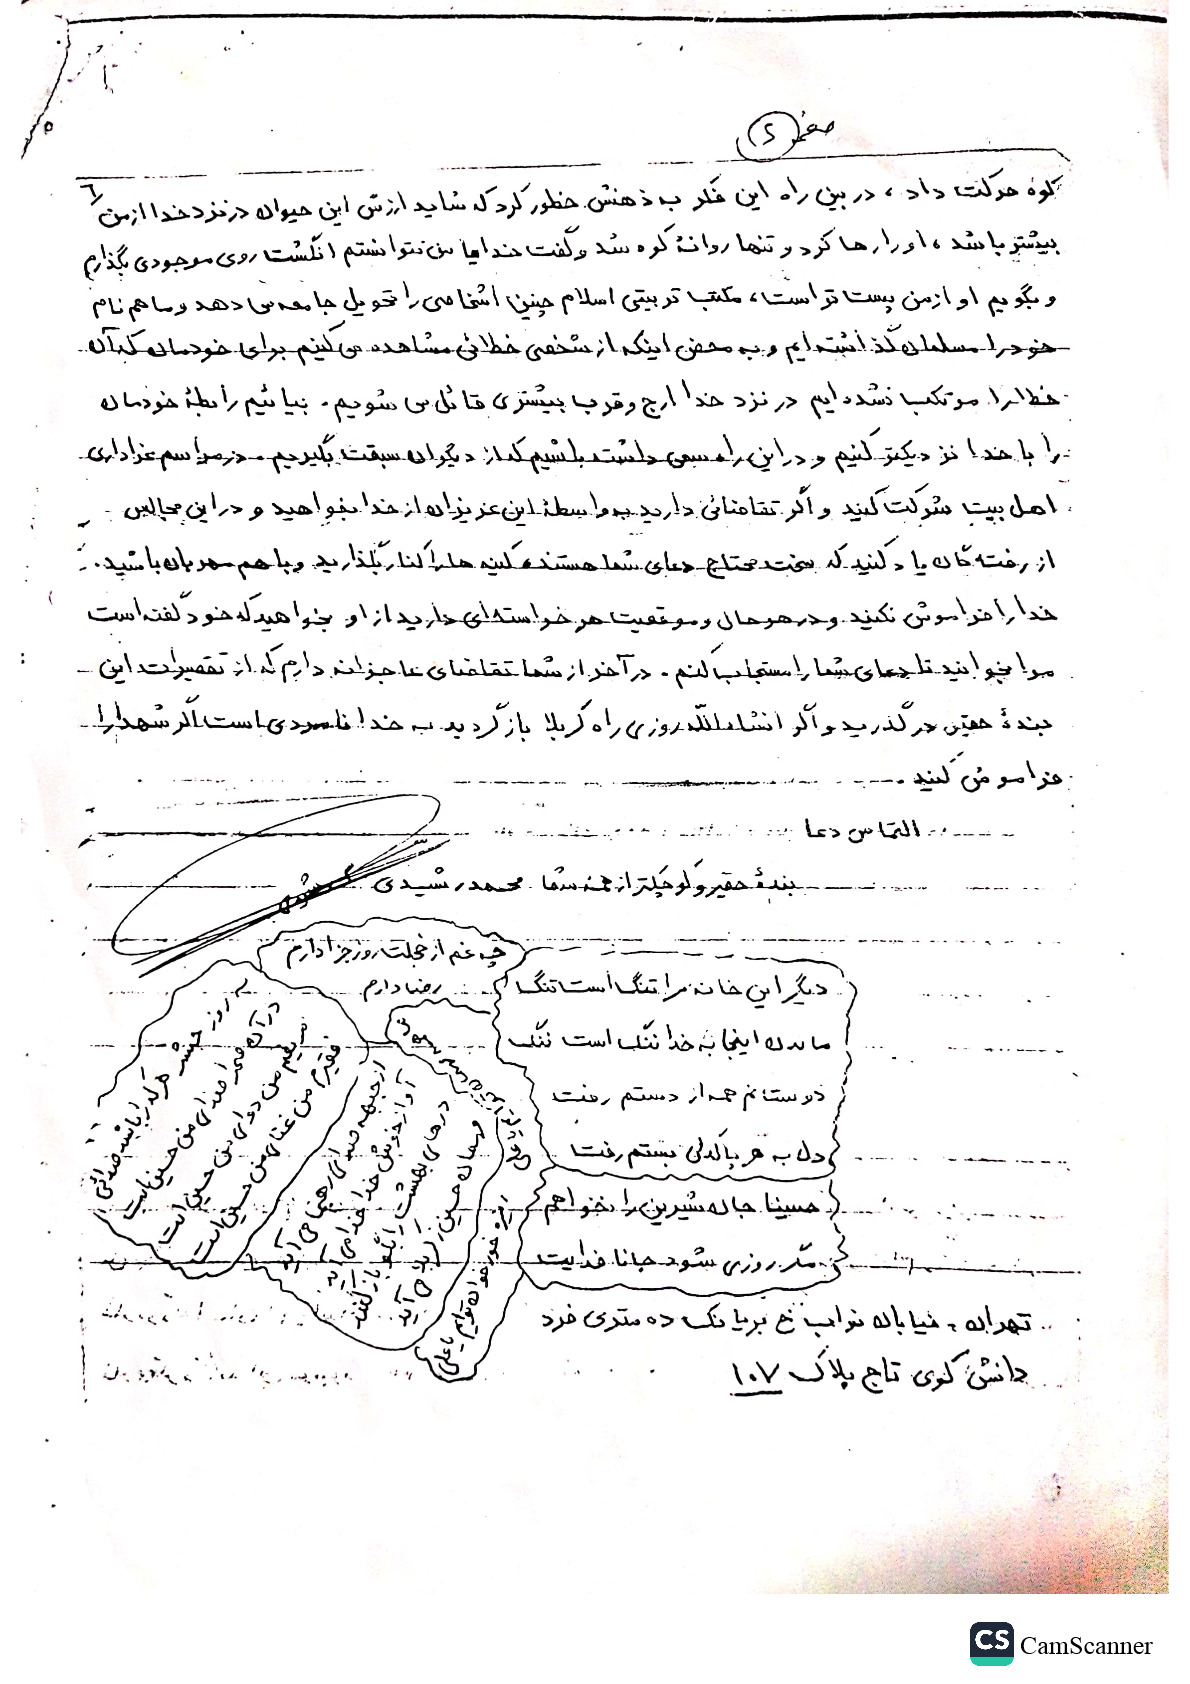 صفحه ۶
کوه حرکت داد، در بین راه این فکر به ذهنش خطور کرد که شاید ارزش این حیوان در نزد خدا از من
بیشتر باشد، او را رها کرد و تنها روانهٔ کوه شد و گفت خدایا من نتوانستم انگشت روی موجودی بگذارم
و بگویم او از من پست تر است، مکتب تربیتی اسلام چنین اشخاصی را تحویل جامعه می دهد و ما هم نام
خود را مسلمان گذاشته ایم و به محض اینکه از شخصی خطائی مشاهده می کنیم برای خودمان که آن
خطا را مرتکب نشده ایم در نزد خدا ارج و قرب بیشتری قائل می شویم. بیائیم رابطهٔ خودمان
را با خدا نزدیکتر کنیم و در این راه سعی داشته باشیم که از دیگران سبقت بگیریم. در مراسم عزاداری
اهل بیت شرکت کنید و اگر تقاضائی دارید به واسطهٔ این عزیزان از خدا بخواهید و در این مجالس
از رفته گان یاد کنید که سخت محتاج دعای شما هستند، کینه ها را کنار بگذارید و با هم مهربان باشید.
خدا را فراموش نکنید و در هر حال و موقعیت هر خواسته ای دارید از او بخواهید که خود گفته است
مرا بخوانید تا دعای شما را مستجاب کنم. در آخر از شما تقاضای عاجزانه دارم که از تقصیرات این
بندهٔ حقیر در گذرید و اگر انشاءالله روزی راه کربلا باز گردید به خدا نامردی است اگر شهدا را
فراموش کنید.
التماس دعا
بندهٔ حقیر و کوچکتر از همهٔ شما محمد رشیدی
چه غم از خجلت روز جزا دارم
رضا دارم
دیگر این خانه مرا تنگ است تنگ
ماندن اینجا به خدا ننگ است ننگ
دوستانم همه از دستم رفت
دل به هر پاکدلی بستم رفت
حسینا جان شیرین را نخواهم
مگر روزی شود جانا فدایت
به روز حشر هر کس را باشد صدائی
در آن صحرا صدای من حسین است
مریضم من دوای من حسین است
فقیرم من غنای من حسین است
از جبهه صدای رهنما می آید
آواز خوش خدا خدا می آید
درهای بهشت را بگو باز کنند
مهمان حسین کربلا می آید
ریزه خور خوان توایم یا علی
تهران، خیابان نواب خ بریانک ده متری فرد
دانش کوی تاج پلاک ۱۰۷
CS CamScanner